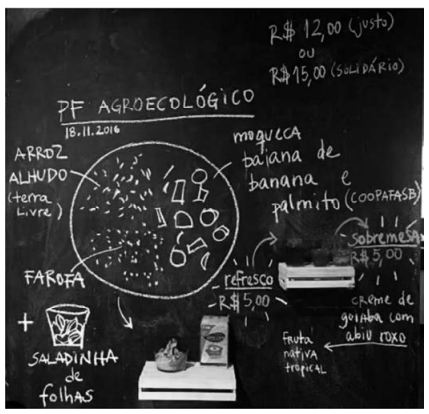 R$ 12,00 (justo)
ou
R$ 15,00 (SOLIDÁRIO)
PF AGROECOLÓGICO
18.11.2016
ARROZ
ALHUDO
(terra
Livre)
moqueca
baiana de
banana e
palmito (COOPAFASB)
FAROFA
refresco
R$ 5,00
sobremesa
R$ 5,00
creme de
goiaba com
abiu roxo
fruta
nativa
tropical
+
SALADINHA
de
folhas